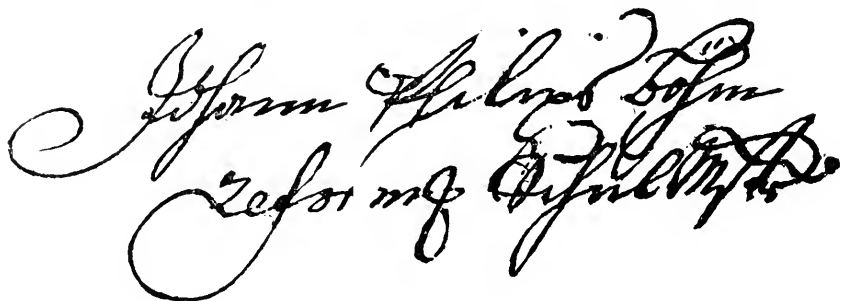 Johann Philips Böhm
reform. Schul Mstr.